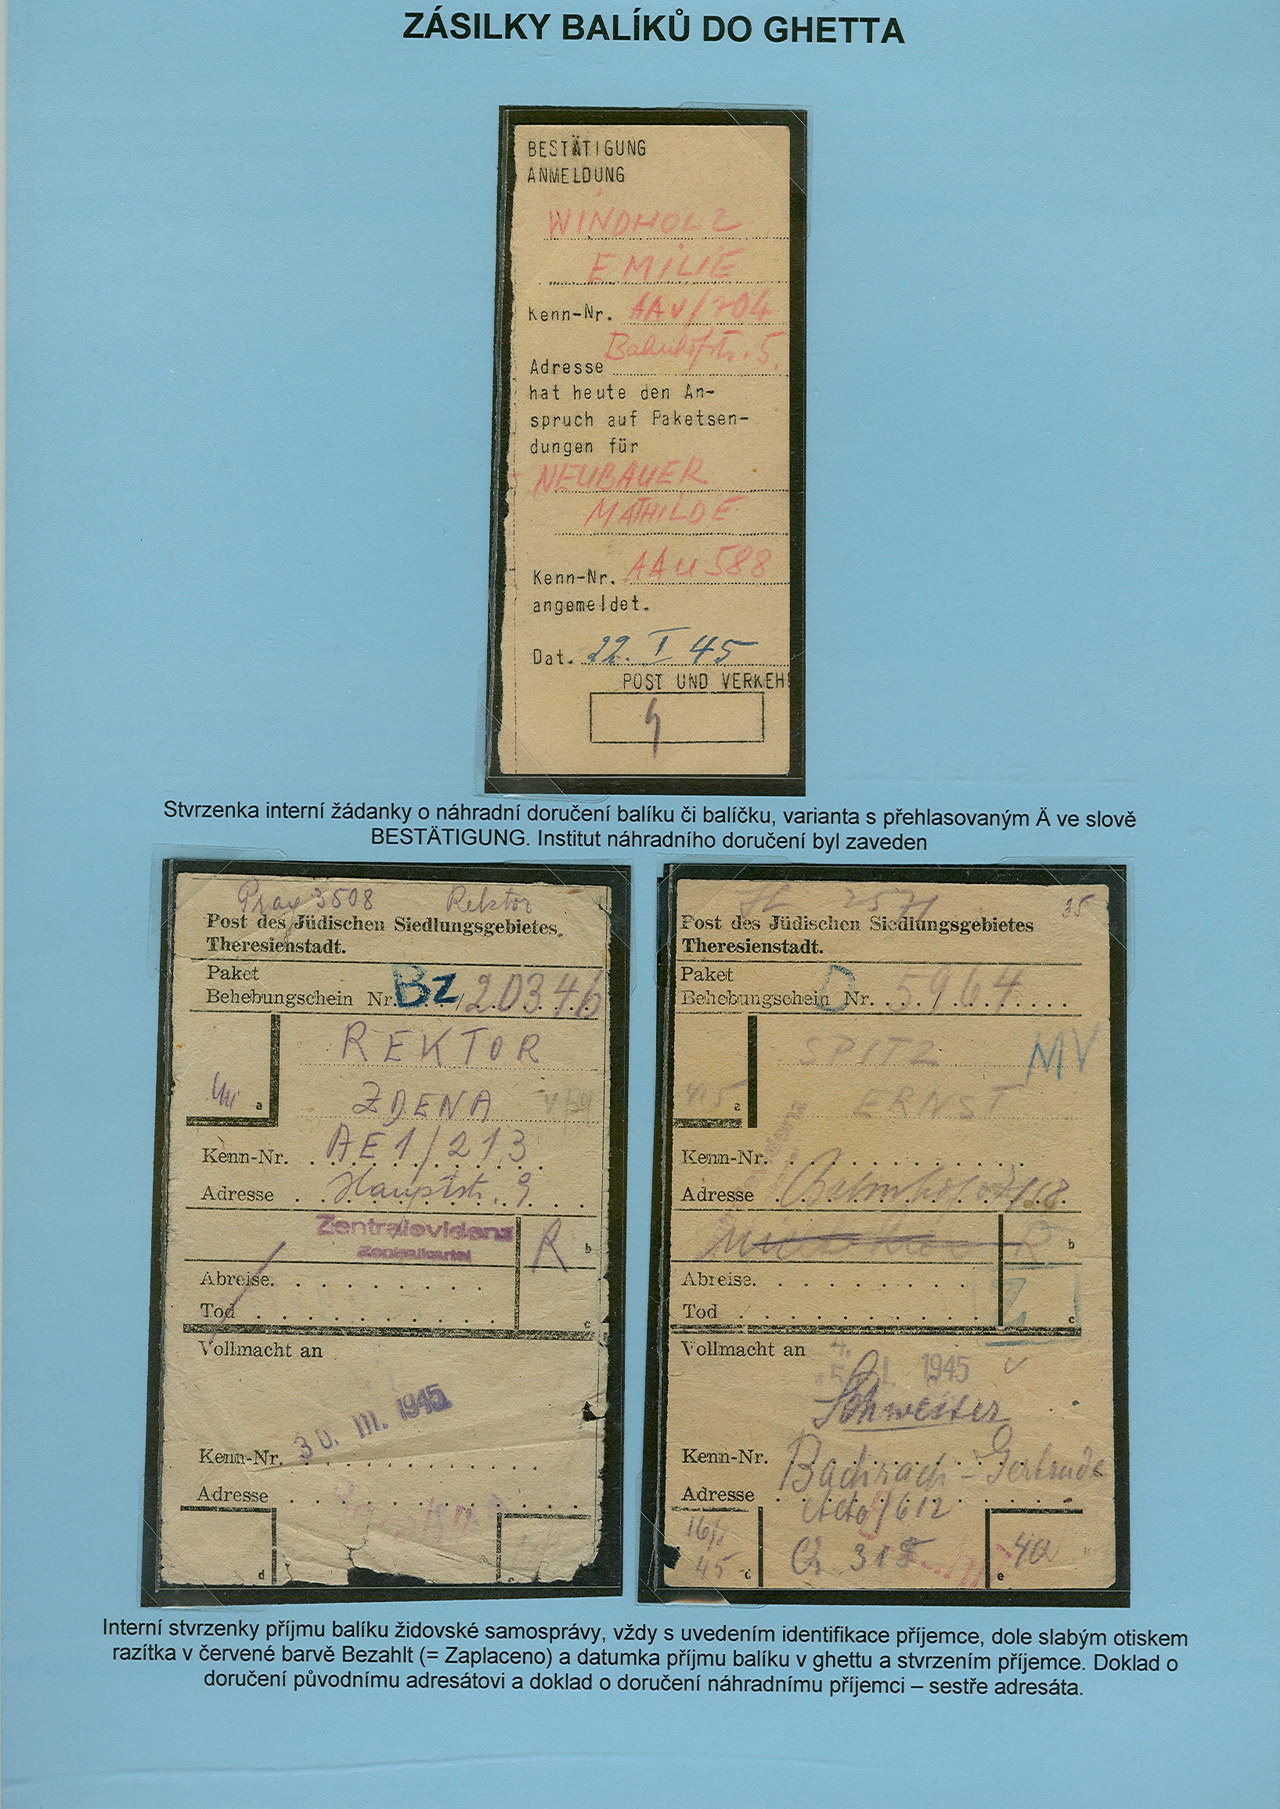 ZÁSILKY BALÍKŮ DO GHETTA
BESTÄTIGUNG
ANMELDUNG
WINDHOLZ
EMILIE
Kenn-Nr. AAv/704
Adresse Bahnhofstr. 5.
hat heute den An-
spruch auf Paketsen-
dungen für
NEUBAUER
MATHILDE
Kenn-Nr. AAu 588
angemeldet.
Dat. 22. I 45
POST UND VERKEH
Stvrzenka interní žádanky o náhradní doručení balíku či balíčku, varianta s přehlasovaným Ä ve slově
BESTÄTIGUNG. Institut náhradního doručení byl zaveden
Prag 3508 Rektor
Post des Jüdischen Siedlungsgebietes.
Theresienstadt.
Paket
Behebungschein Nr. Bz / 20346
REKTOR
a
ZDENA
Kenn-Nr. AE1/213
Adresse Hauptstr. 9
Zentralevidenz
Zentralkartei
R b
Abreise.
Tod
c
Vollmacht an
30. III. 1945
Kenn-Nr.
Adresse
d
2571 35
Post des Jüdischen Siedlungsgebietes
Theresienstadt.
Paket
Behebungschein Nr. D 5964
SPITZ MV
a
ERNST
Kenn-Nr.
Adresse
R b
Abreise.
Z
Tod
c
Vollmacht an
1945
Schwester
Kenn-Nr. Bachrach - Gertrude
Adresse
/612
16/1
45
40
e
Interní stvrzenky příjmu balíku židovské samosprávy, vždy s uvedením identifikace příjemce, dole slabým otiskem
razítka v červené barvě Bezahlt (= Zaplaceno) a datumka příjmu balíku v ghettu a stvrzením příjemce. Doklad o
doručení původnímu adresátovi a doklad o doručení náhradnímu příjemci – sestře adresáta.